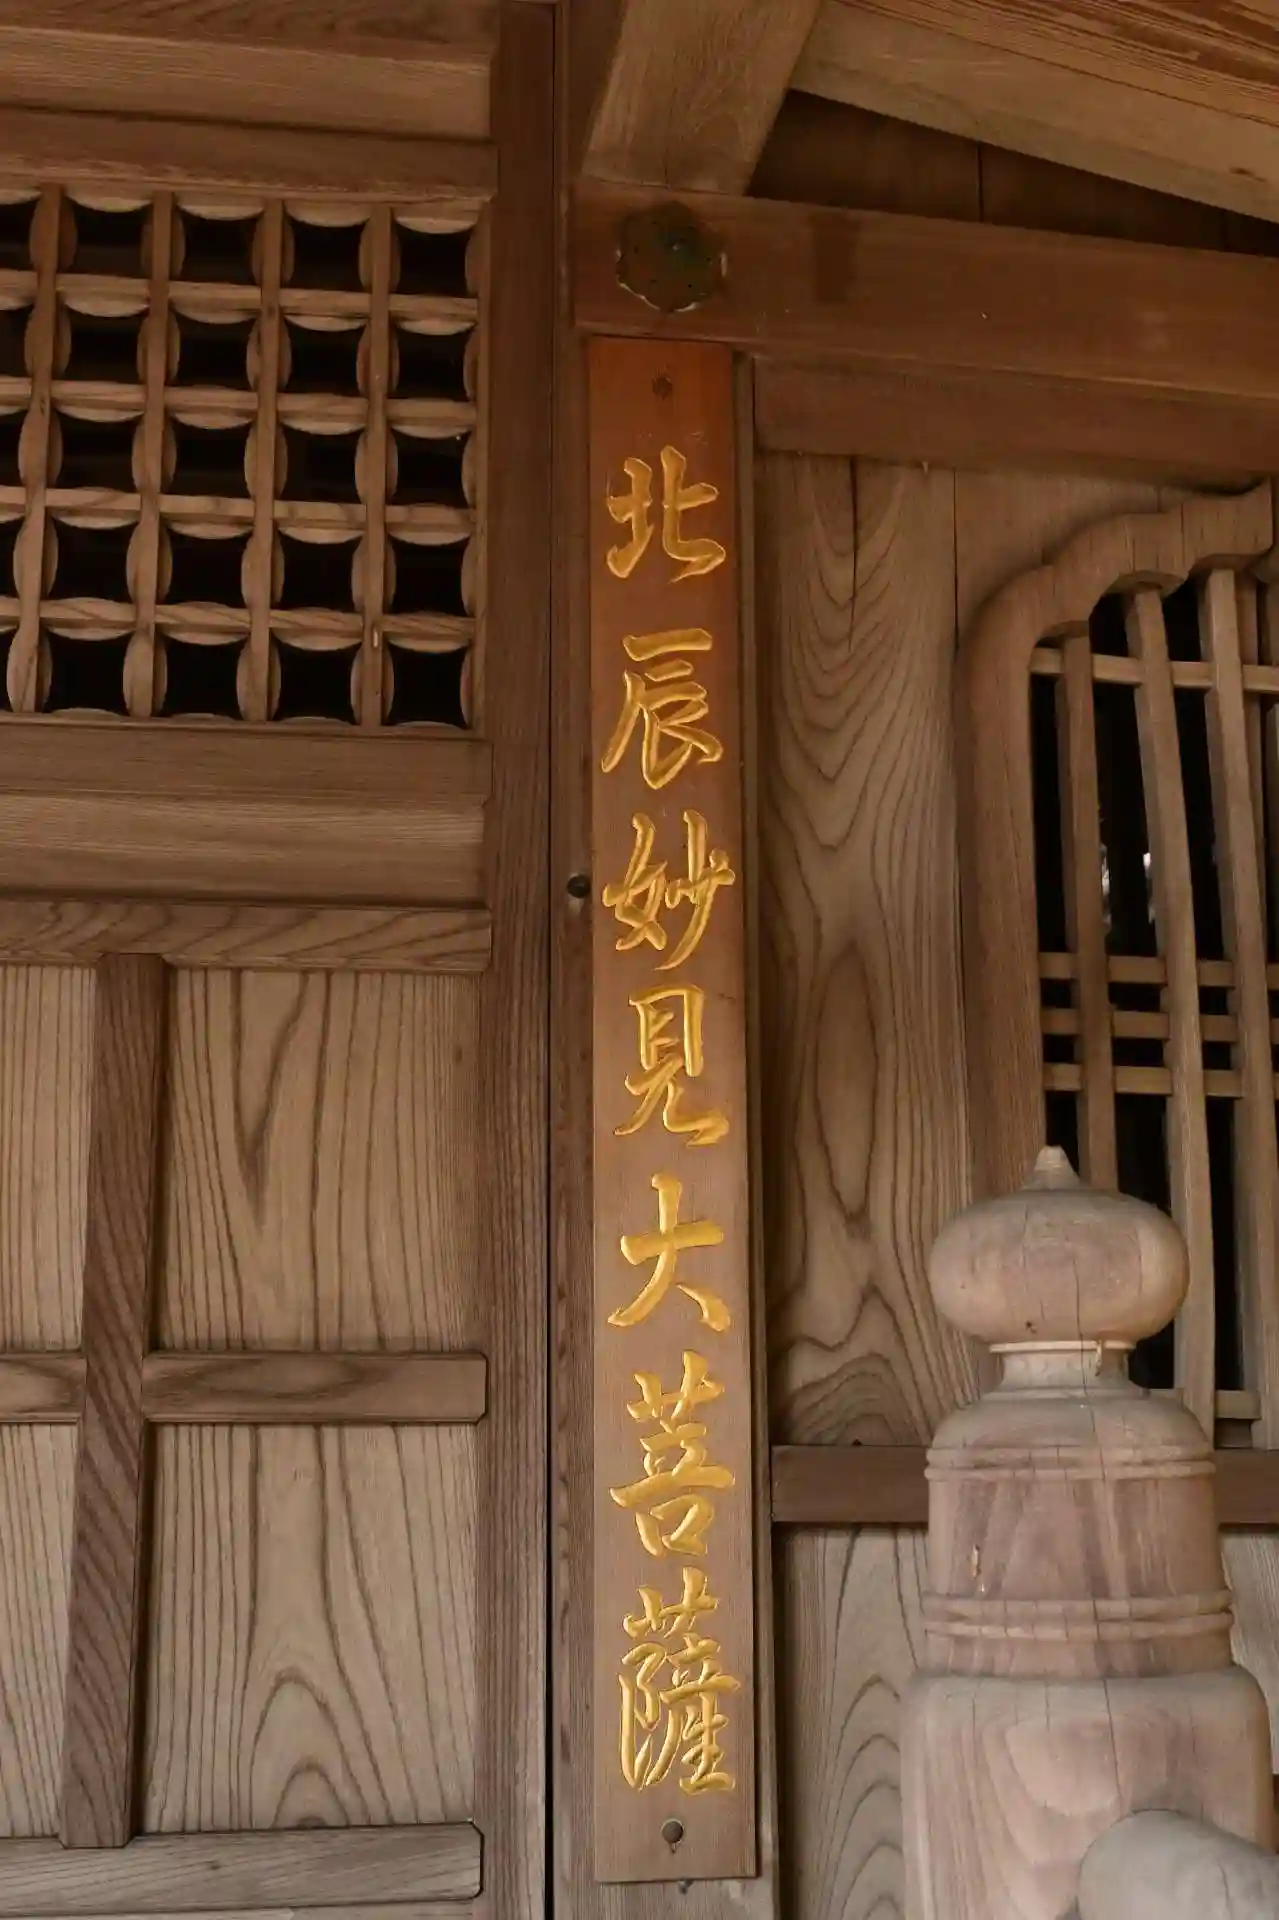 北辰妙見大菩薩